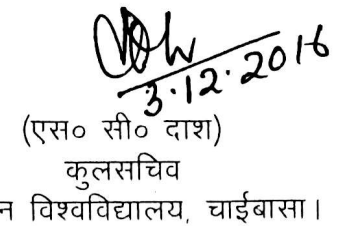 3.12.2016
(एस० सी० दाश)
कुलसचिव
न विश्वविद्यालय, चाईबासा।